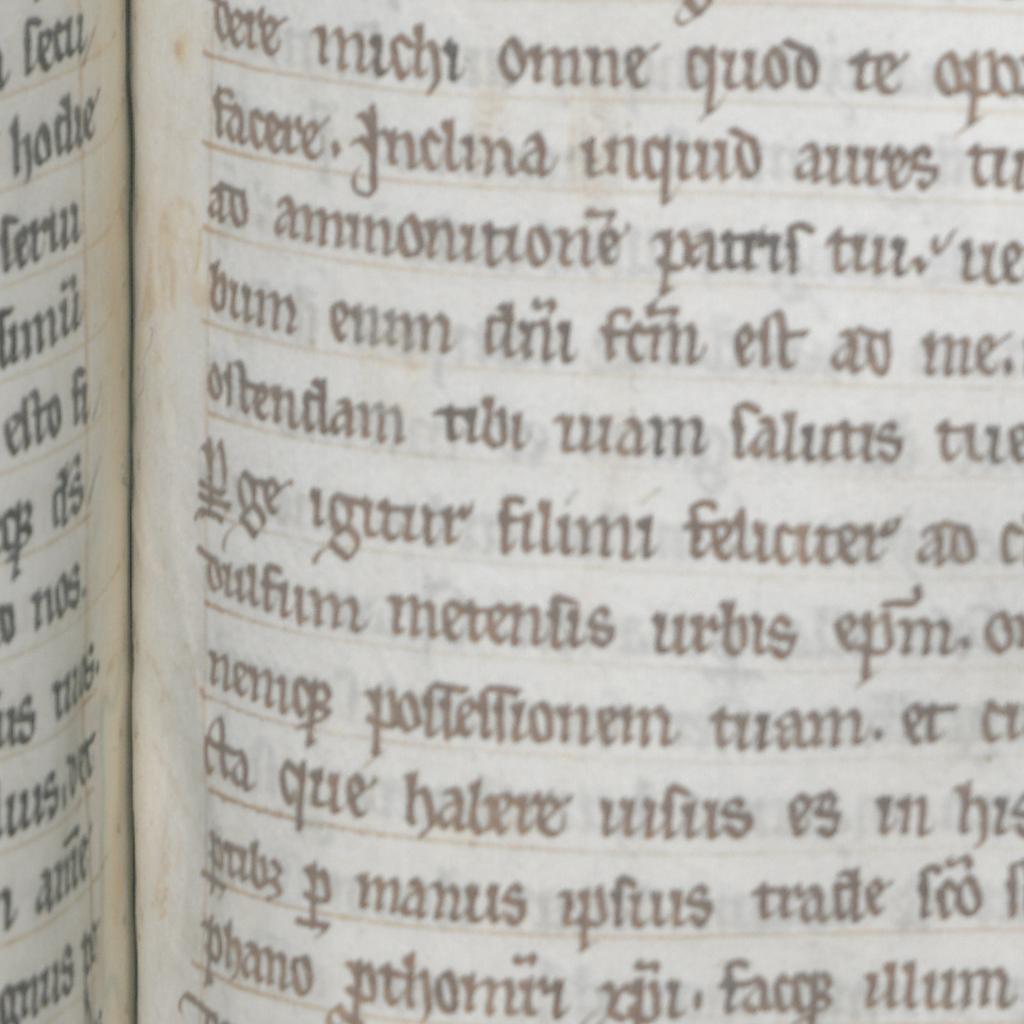 setu
hodie
setui
simū
esto fi
qꝫ ds̄
nos.
us
luus.
am̄
gnus
dere michi omne quod te opor
facere. Inclina inquid aures tu
ad ammonitionē patris tui. ue
bum enim dn̄i fcm̄ est ad me.
ostendam tibi uiam salutis tue
ge igitur fili mi feliciter ad c
dulfum metensis urbis ep̄m. o
nemqꝫ possessionem tuam. et cu
cta que habere uisus es in his
ptibꝫ ꝑ manus ipsius trade scō s
phano ꝓthomr̄i xp̄i. facqꝫ illum